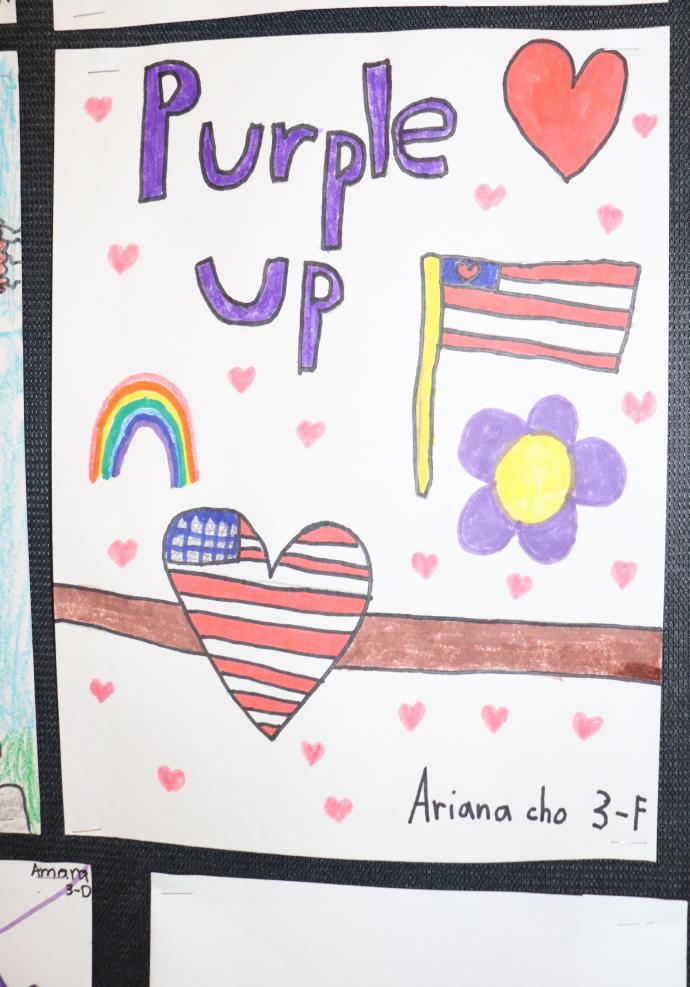 Purple
up
Ariana cho 3-F
Amara
3-D